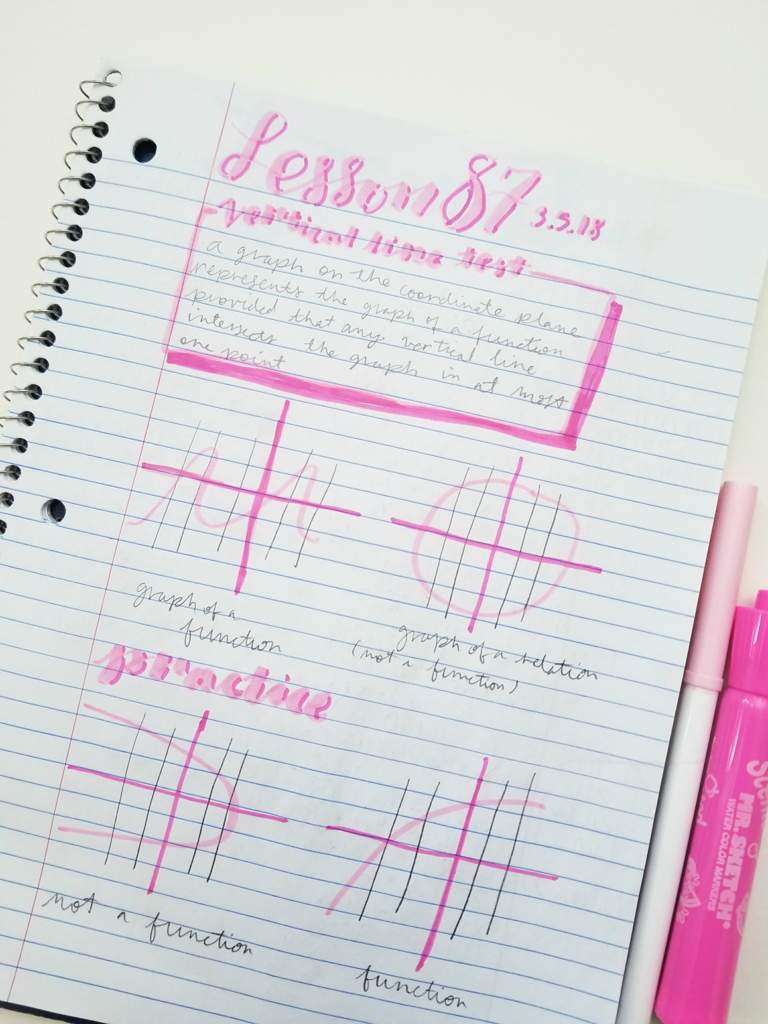 Lesson 87 3.5.18
vertical line test
a graph on the coordinate plane
represents the graph of a function
provided that any vertical line
intersects the graph in at most
one point
graph of a
function
graph of a relation
(not a function)
practice
not a function
function
MR. SKETCH
WATER COLOR MARKERS